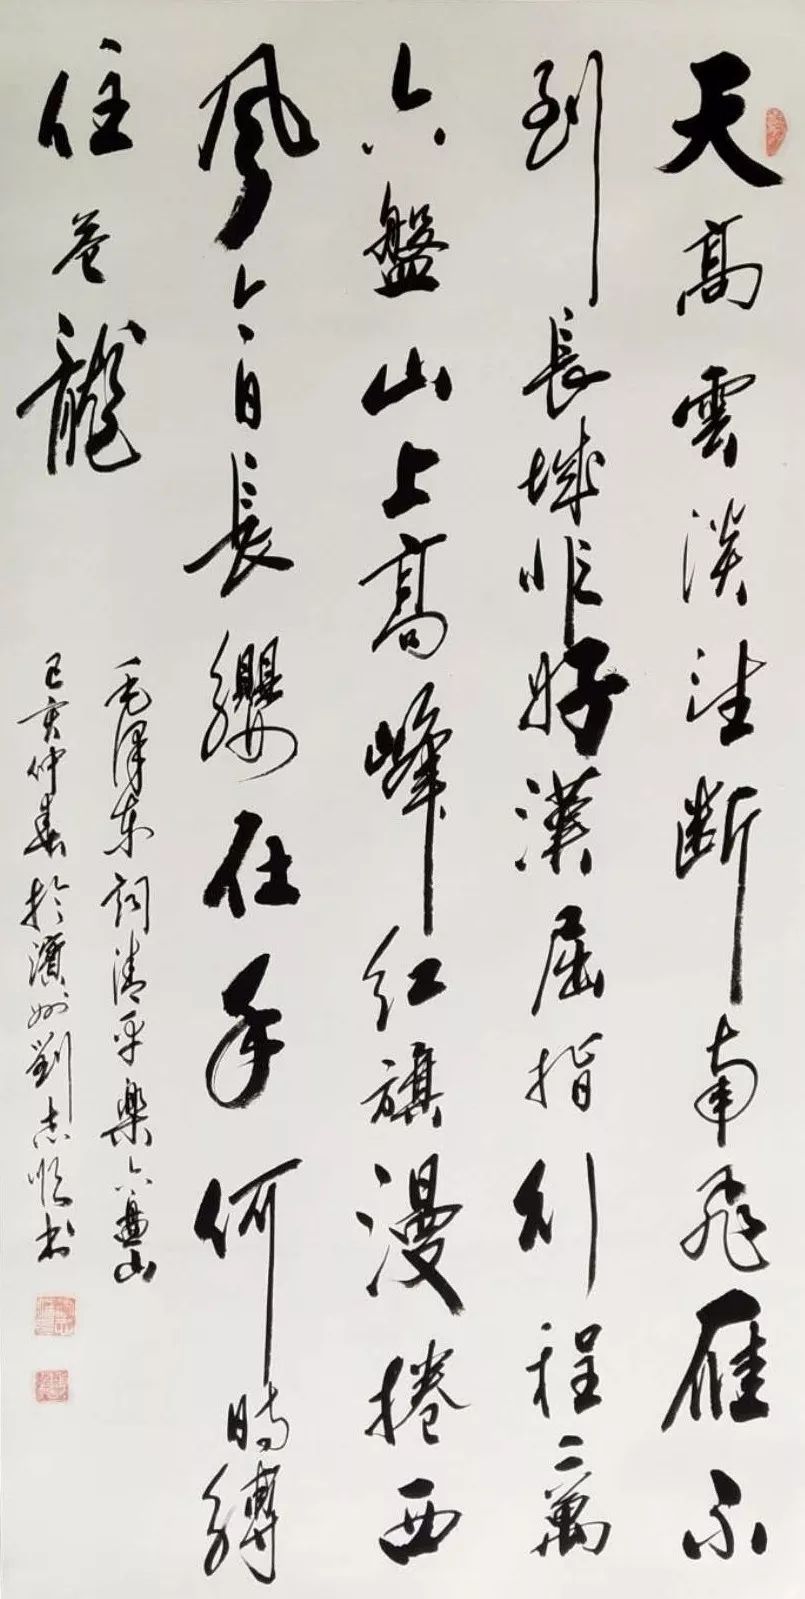 天高雲淡望斷南飛雁不
到長城非好漢屈指行程二萬
六盤山上高峰紅旗漫捲西
風今日長纓在手何時縛
住蒼龍
毛澤東詞清平樂六盤山
己亥仲春於濱州劉志順書